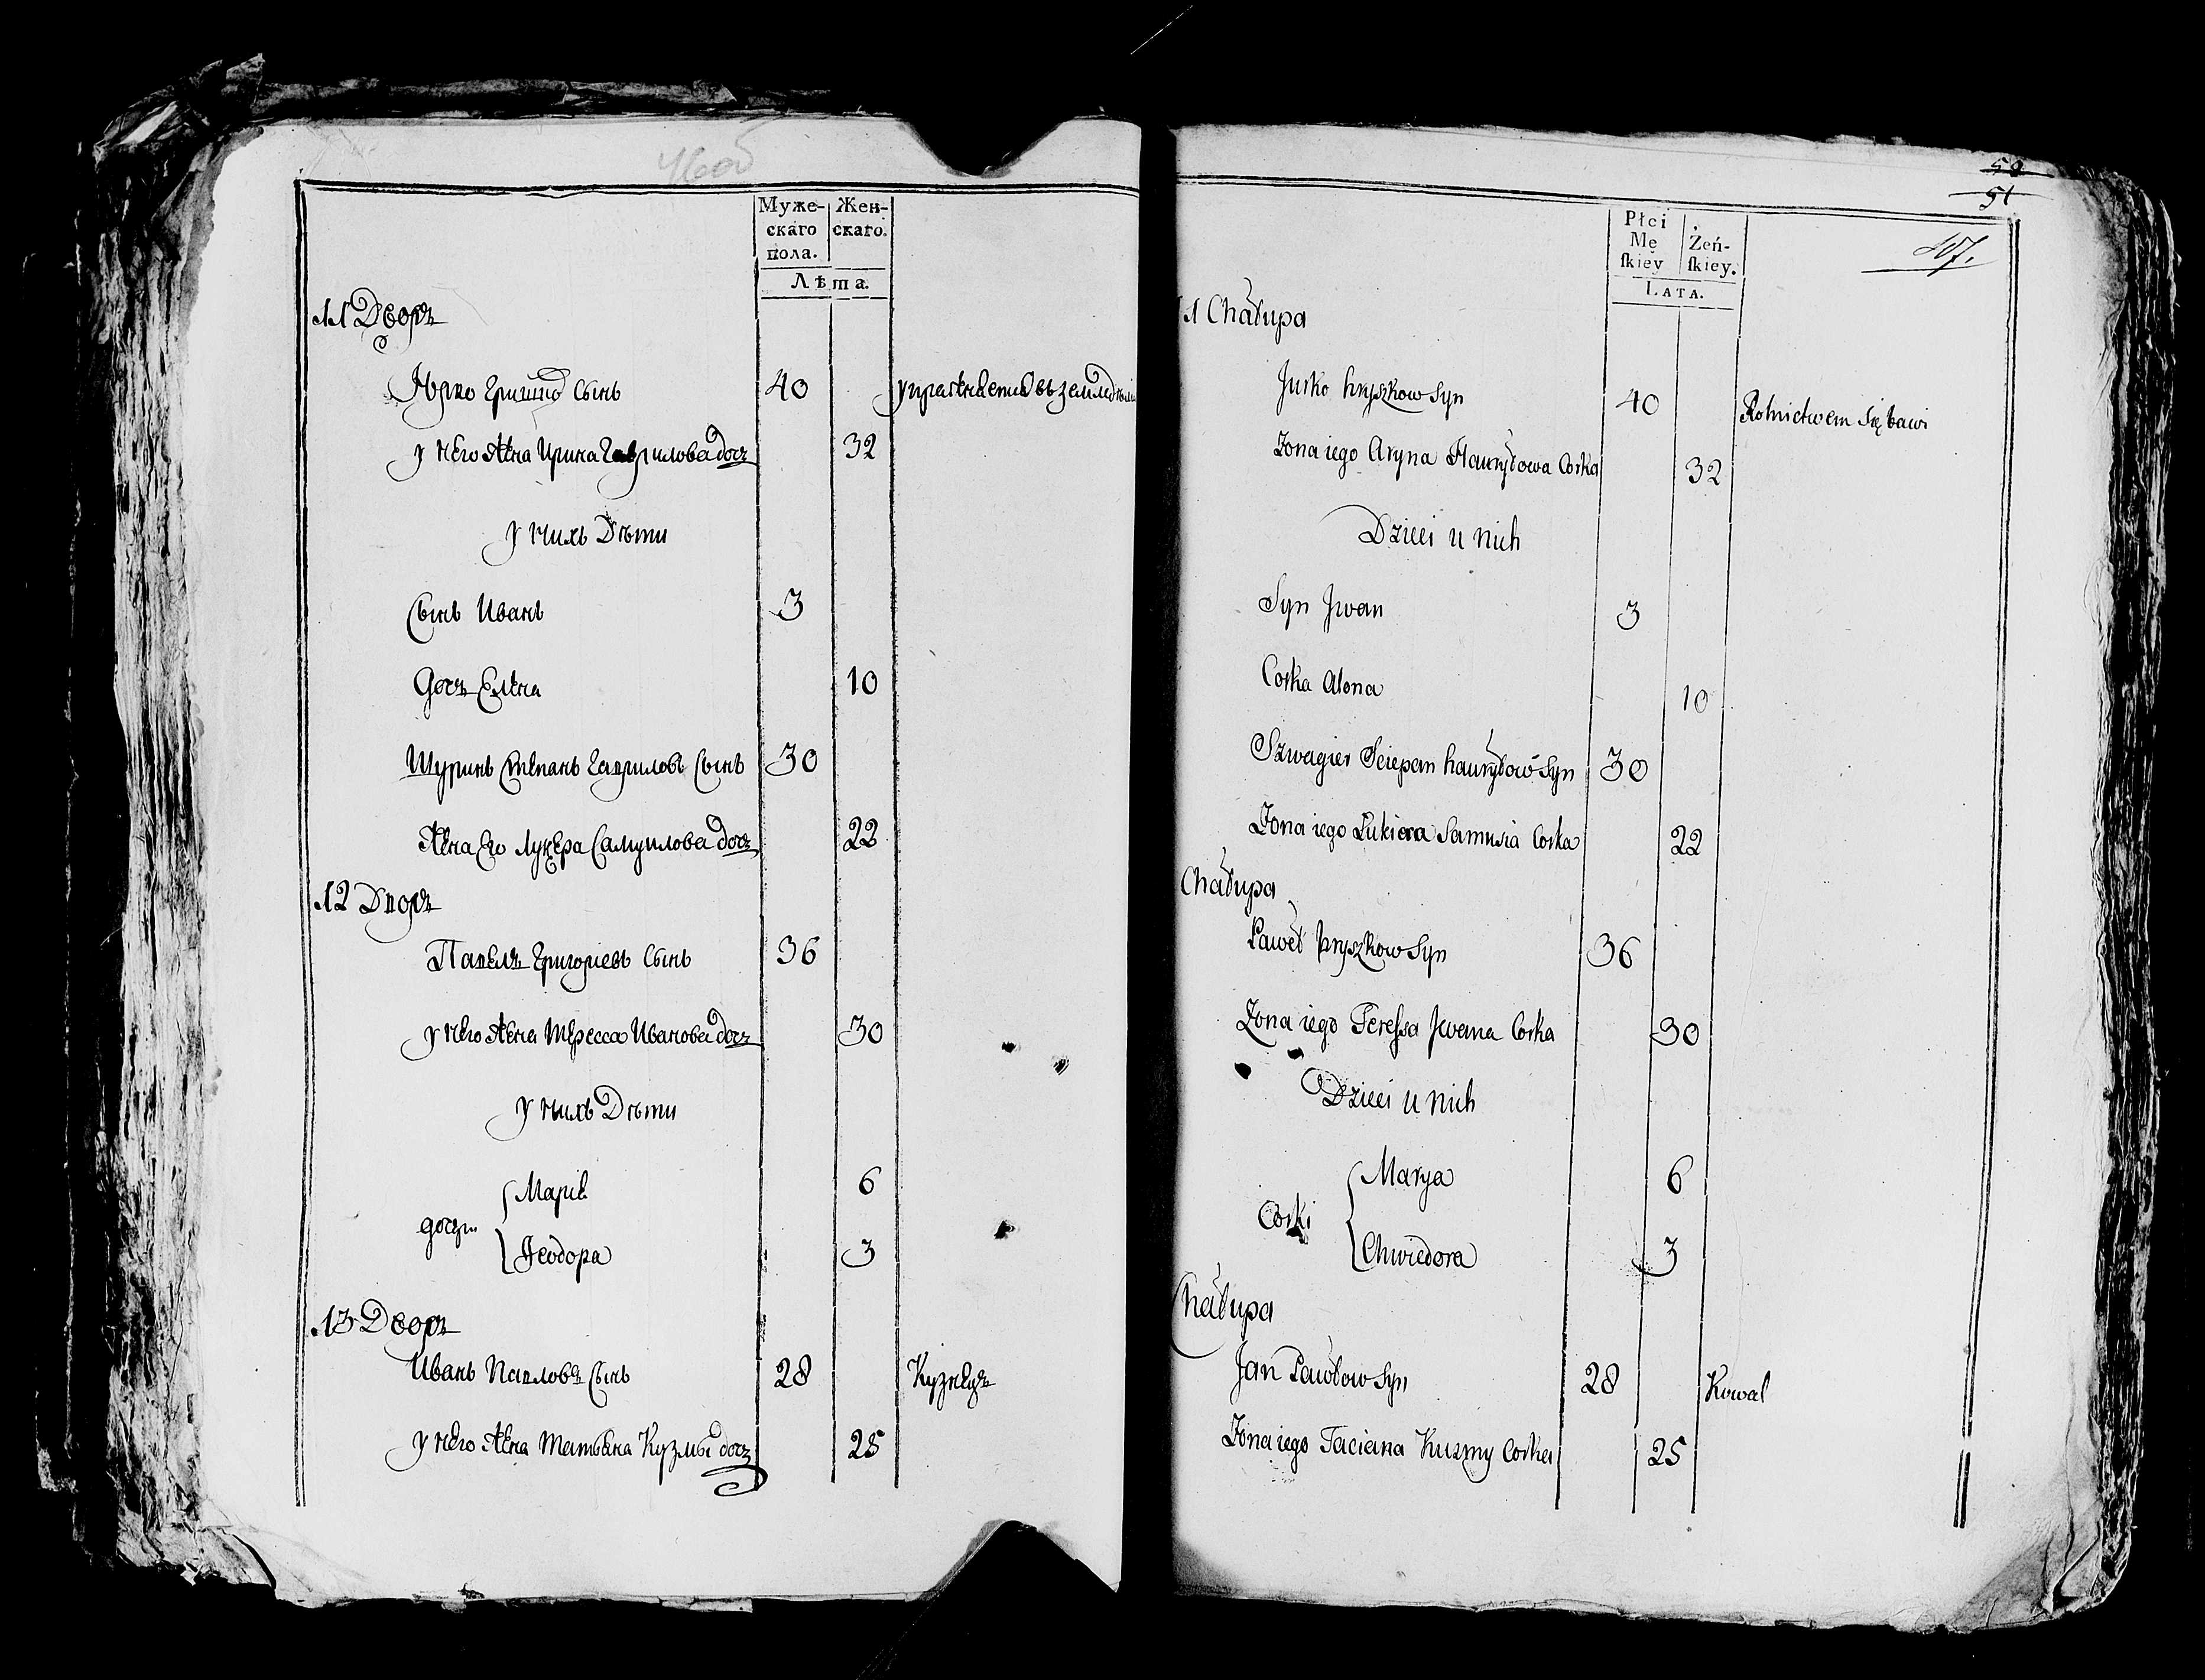 46об
Муже-
скаго
пола.
Жен-
скаго.
Лѣта.
11 Дворъ
Юрко Гришковъ Сынъ 40 упражняется въ земледѣліи
у него жена Ирина Гаврилова дочь 32
у нихъ Дѣти
Сынъ Иванъ 3
дочь Елена 10
Шуринъ Степанъ Гавриловъ Сынъ 30
жена Его Лукера Самуилова дочь 22
12 Дворъ
Павелъ Григорiевъ Сынъ 36
у него жена Тересса Иванова дочь 30
у нихъ Дѣти
дочери
Марiя 6
Ѳеодора 3
13 Дворъ
Иванъ Павловъ Сынъ 28 Кузнецъ
у него жена Татьяна Кузмы дочь 25
51
Płci
Mę
ſkiey
Żeń-
ſkiey.
Lata.
47.
1 Chałupa
Jurko hryszkow Syn 40 Rolnictwem się bawi
Żona iego Aryna Hawryłowa Corka 32
Dzieci u nich
Syn Jwan 3
Corka Alona 10
Szwagier Sciepan hawryłow Syn 30
Żona iego Łukiera Samusia Corka 22
Chałupa
Paweł hryszkow Syn 36
Żona iego Teressa Jwana Corka 30
Dzieci u nich
Corki
Marya 6
Chwiedora 3
Chałupa
Jan Pawłow Syn 28 Kowal
Żona iego Taciana Kuzmy Corka 25